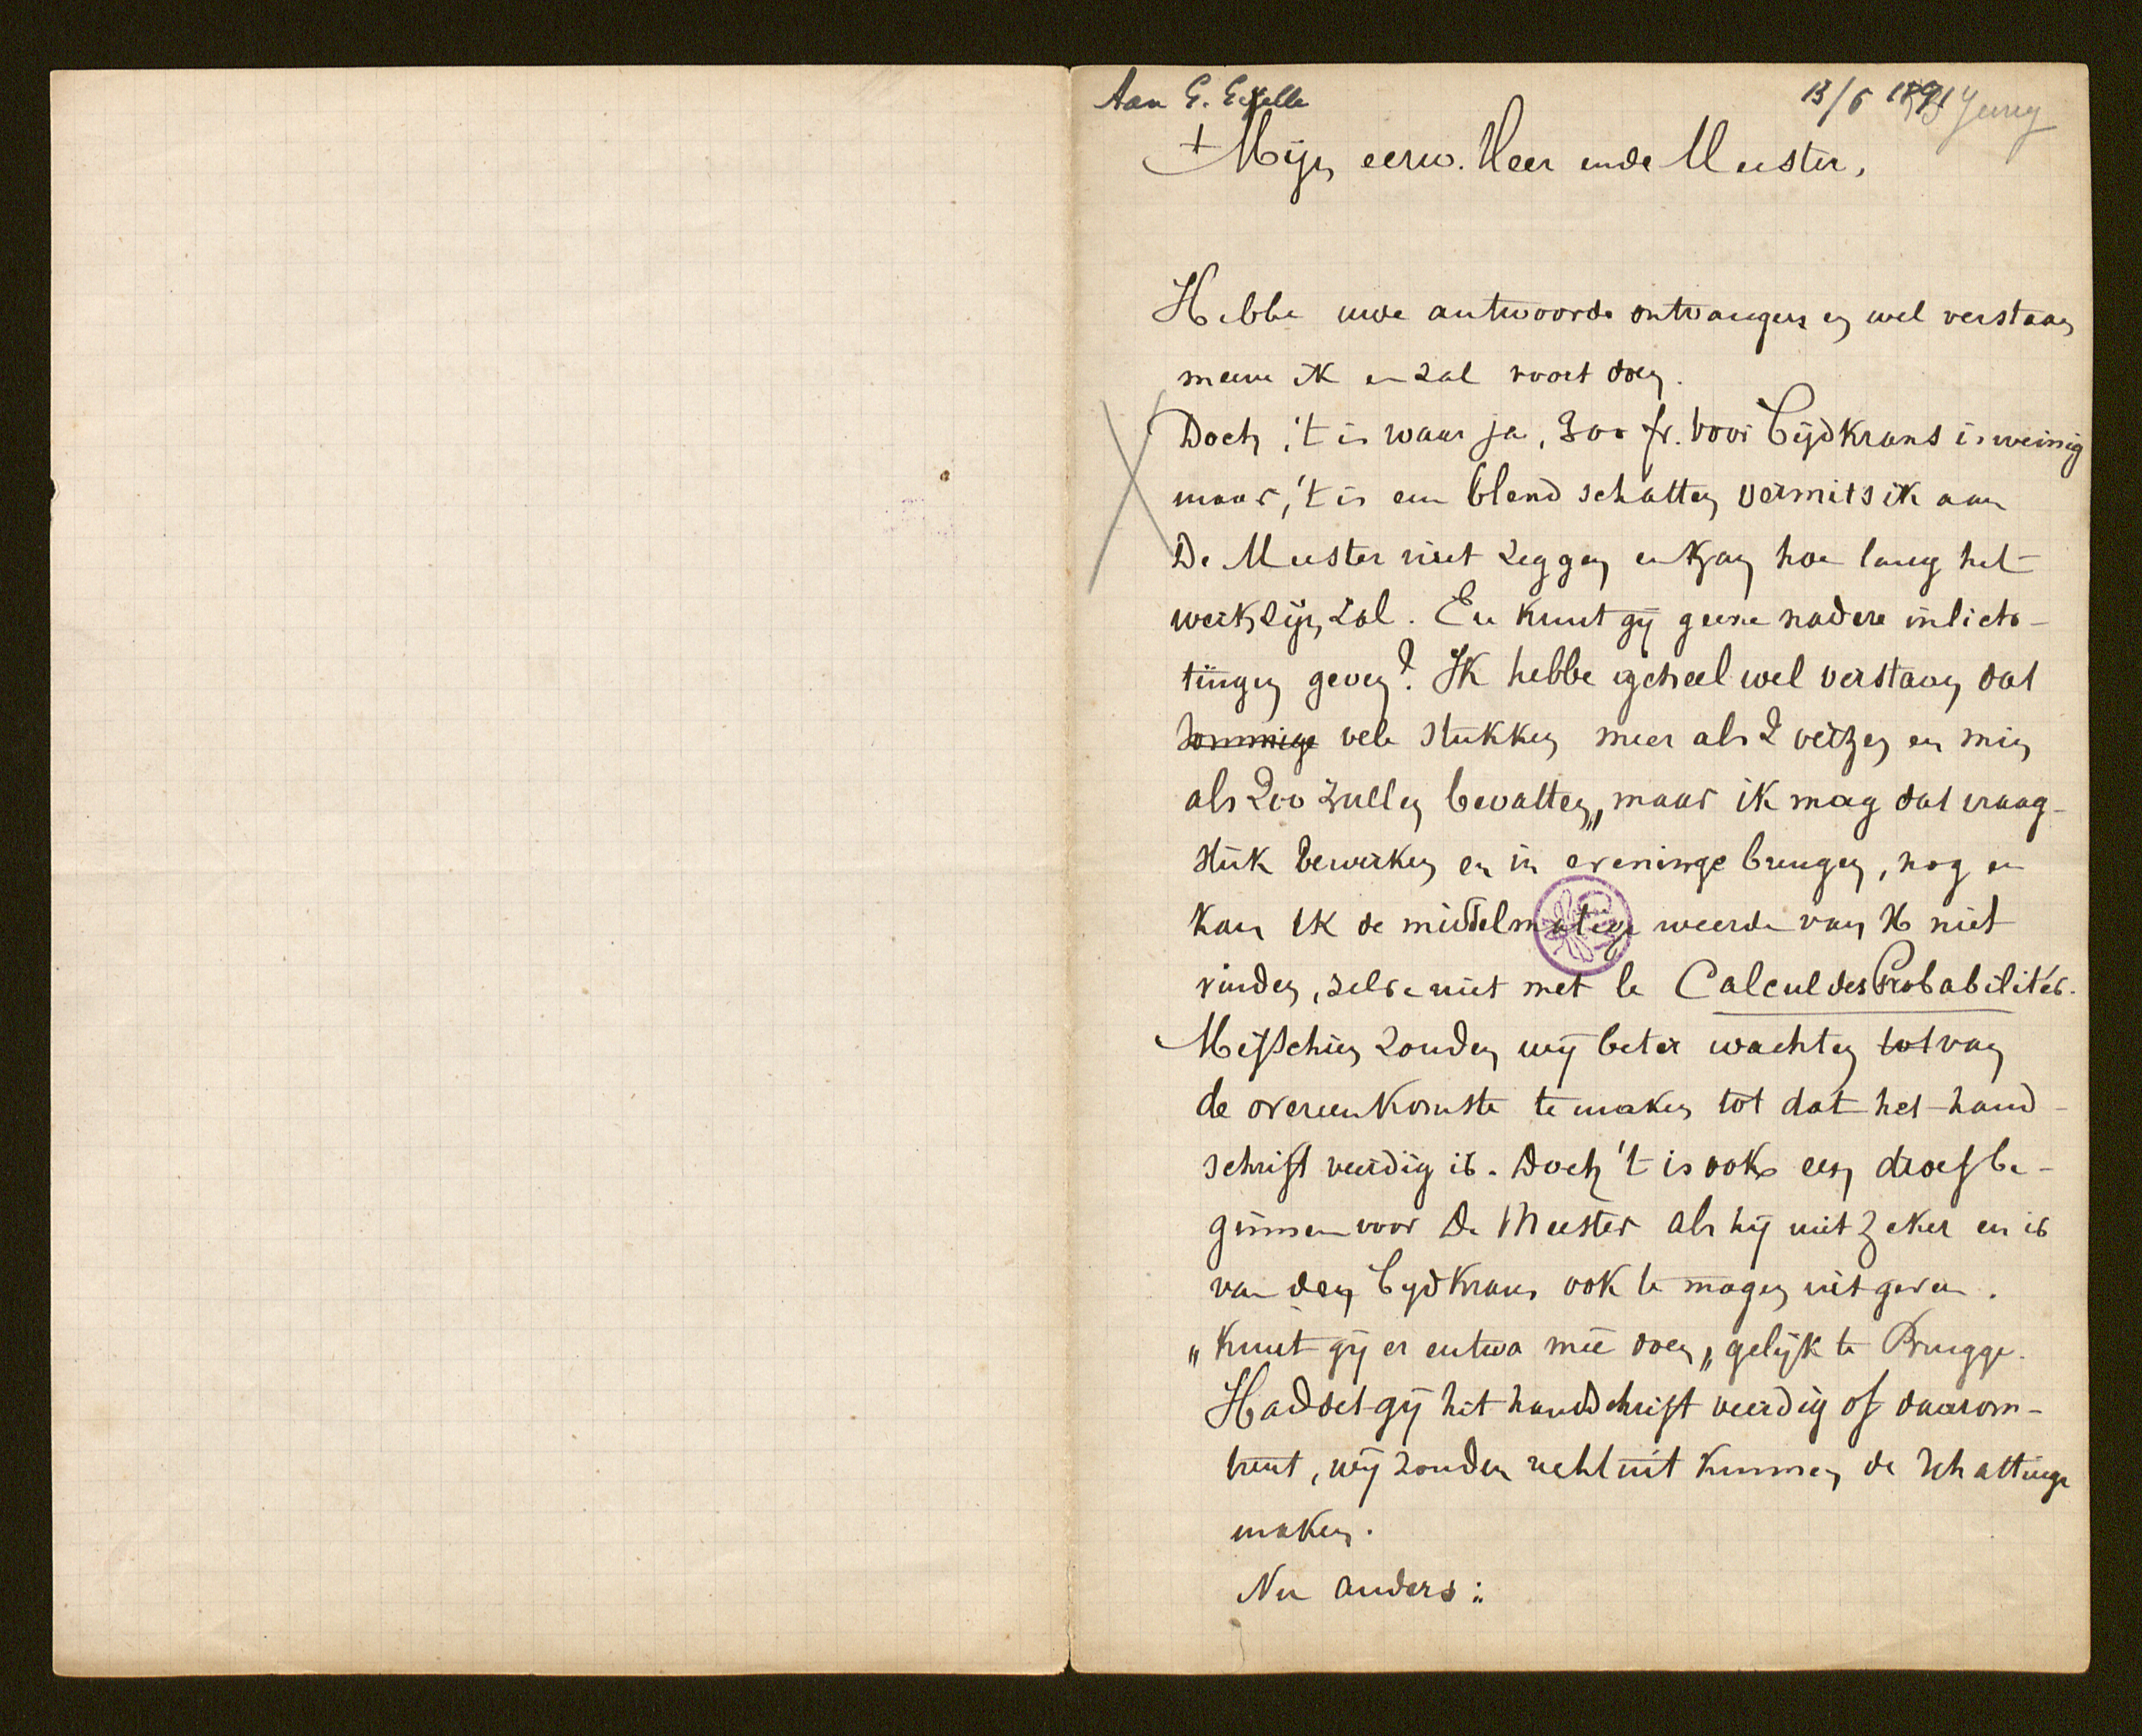 Aan G. Gezelle
13/6 1891
+ Mijn eerw. Heer ende Meester,
Hebbe uwe antwoorde ontvangen en wel verstaan
meene ik en zal voort doen.
Doch, 't is waar ja, 300 fr. voor Tijdkrans is weinig
maar, 't is een blend schatten vermits ik aan
De Meester niet zeggen en kan hoe lang het
werk zijn zal. En kunt gij geene nadere inlich-
tingen geven? Ik hebbe geheel wel verstaan dat
sommige vele stukken meer als 2 verzen en min
als 200 zullen bevatten, maar ik mag dat vraag-
stuk bewerken en in eveninge brengen, nog en
kan ik de middelmatige weerde van X niet
vinden, zelve niet met le Calcul des Probabilités.
Misschien zouden wij beter wachten tot van
de overeenkomste te maken tot dat het hand-
schrift veerdig is. Doch 't is ook een droef be-
ginnen voor De Meester als hij niet zeker en is
van den Tijdkrans ook te mogen uitgeven.
"Kunt gij er entwa meê doen" gelijk te Brugge.
Haddet gij het handschrift veerdig of daarom-
trent, wij zouden rechtuit kunnen de schattinge
maken.
Nu anders: